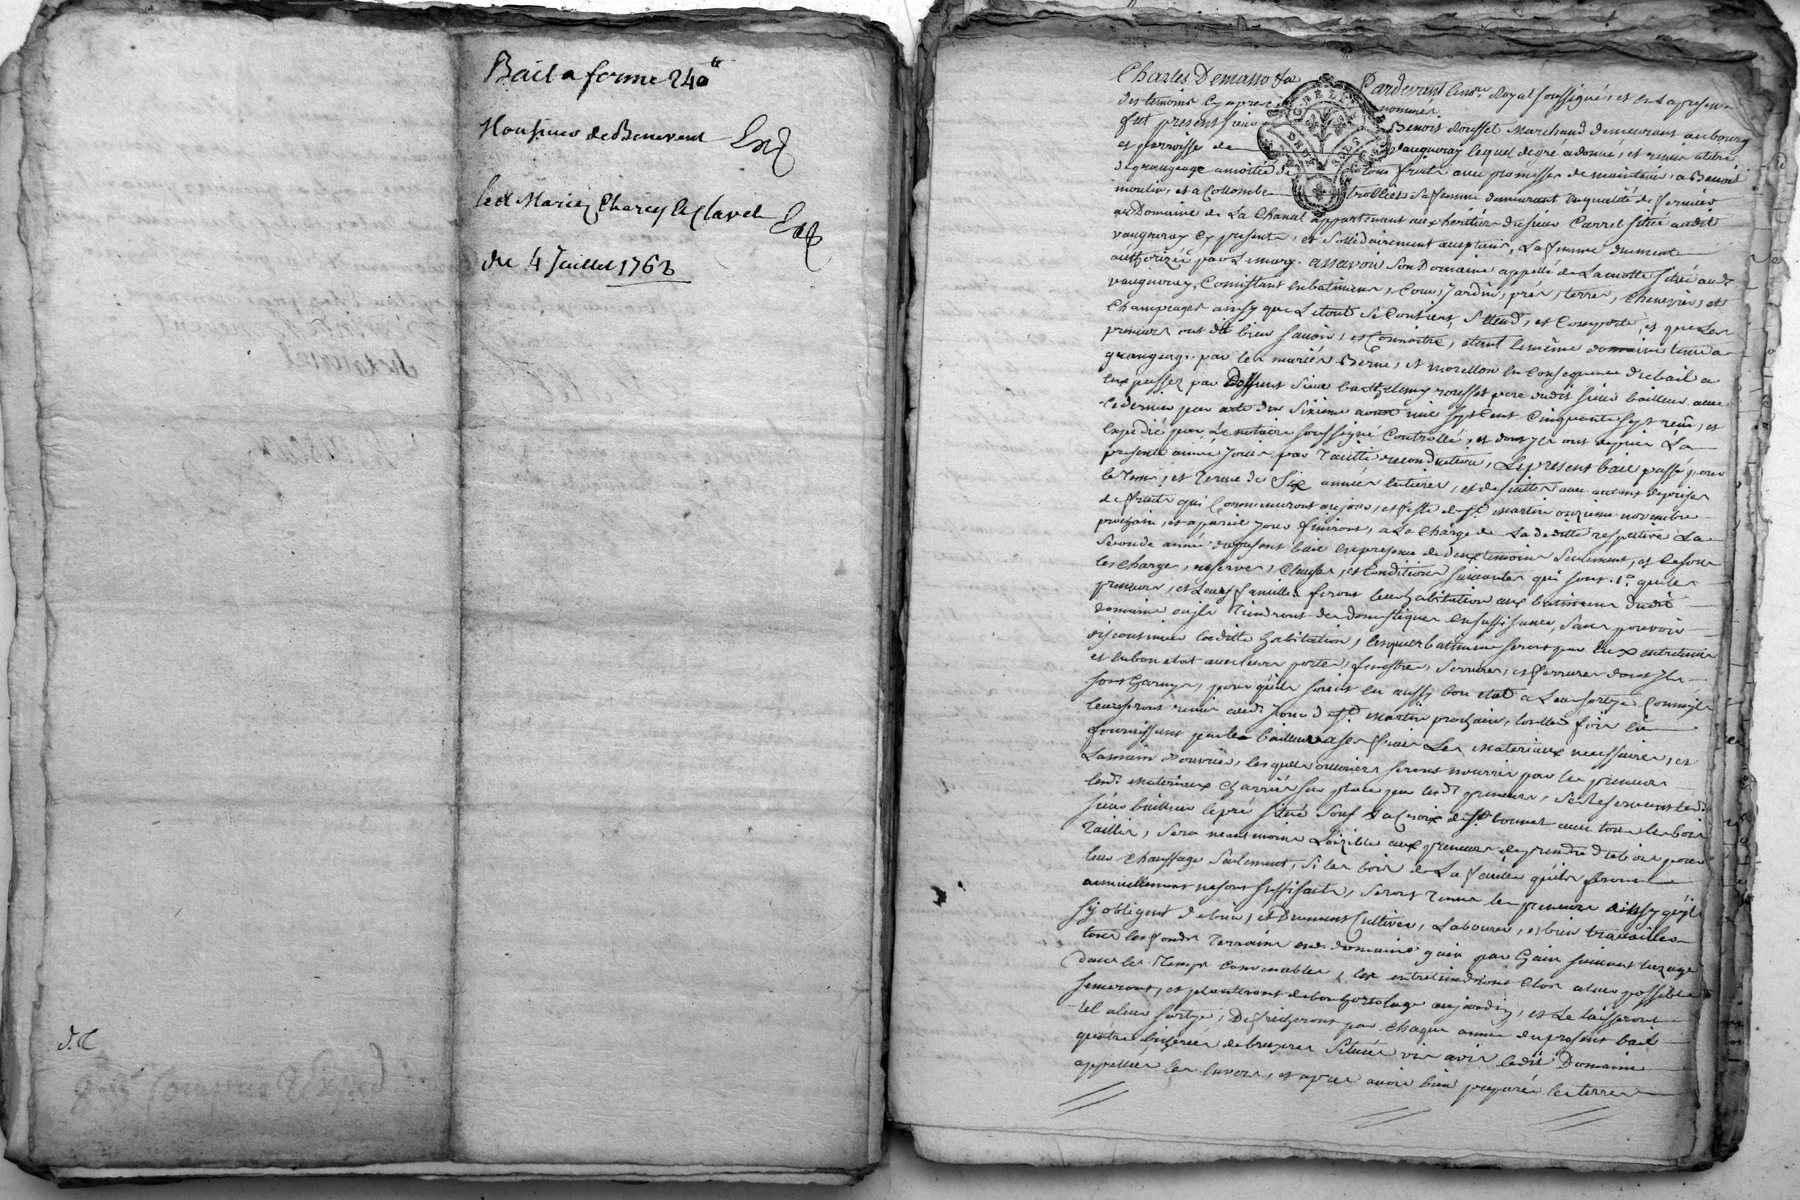 Bail a ferme 240#
Monsieur de Benevent Exp
Led. Mariez Charcy le Clavel Exp
du 4 Juillet 1763
d. C
Charles Demasso
Pardevant le no.re Royal soussigné, et en la presence
des temoins cy apres nommés
fut present sieur Benoit Rousset Marchand demeurant au bourg
et parroisse de vaugneray lequel de gré a donné, et remis a titre
de grangeage a moitié de tous fruits avec promesses de maintenir, a Benoit
moulin, et a Colombe sa femme demeurant en qualité de fermier
au Domaine de La Chanal appartenant aux heritiers du sieur Carret situé audit
vaugneray cy presents, et solidairement accepteurs, La femme duement
authorizée par Le mary. assavoir son Domaine appellé de Lamotte situé aud.t
vaugneray, Consistant en batiments, Cour, Jardin, prés, terres, chenevier, et
Champeages ainsy que Le tout se Contient, s'Etend, et Comporte, et que Les
preneurs ont dit bien savoir, et Connoitre, etant le même domaine tenu a
grangeage par les mariés Berne, et morellon en Consequence du bail a
eux passé par Deffunt sieur barthelemy rousset pere dudit sieur bailleur
par acte du sixieme aoust mil sept cent cinquante sept reçu, et
Expedié par Le notaire soussigné Controllé, et dont ils ont depuis La
presente année Joui par Taisitte reconduction, Le present bail passé pour
le Tems, et Terme de six années entieres, et de suittes avec autant de prises
de fruits qui Commenceront au jour, et feste de St. Martin onzieme novembre
prochain, et a pareil jour finiront, a La Charge de La deditte respective La
seconde année du present bail en presence de deux temoins seulement, et de sous
les Charges, reserves, Clauses, et Conditions suivantes qui sont. 1°. que les
preneurs, et Leurs familles feront leur habitation aux batiments dudit
domaine ou ils Tiendront des domestiques en suffisance, sans pouvoir
discontinuer laditte habitation, lesquels batiments seront par Eux entretenus
et en bon etat avec leurs portes, fenestres, serrures, et ferrures dont ils
sont Garnys, pour qu'ils soient en aussy bon etat a Leur sortye Comme ils
leur seront remis aud. Jour de St. Martin prochain, touttes fois En
fournissant par le bailleur a ses fraix Les materiaux necessaires, et
La main d'ouvriers, lesquels ouvriers seront nourris par les preneurs
lesd. materiaux Charriés sur place par lesd.ts preneurs, se Reservant led.
sieur bailleur le pré situé sous La Croix de St. bonnet avec tous les bois
Taillis, sera neantmoins Loizible aux preneurs de prendre du bois pour
leur chauffage seulement, si les bois de La feuille qu'ils feront
annuellement ne sont suffisants, seront Tenus les preneurs ainsy qu'ils
s'y obligent de bien, et Duement Cultiver, Labourer, et bien travailler
tous les fonds Terrains dud. domaine gain par Gain suivant l'uzage
dans les Temps Convenables, les entretiendront Clos a leur possible
semeront, et planteront de bon hortolage au jardin, et Le laisseront
tel a leur sortye, Defricheront par chaque année du present bail
quatre bicherées de bruyeres situées vis avis ledit Domaine
appellées les , et apres avoir bien preparé les terres